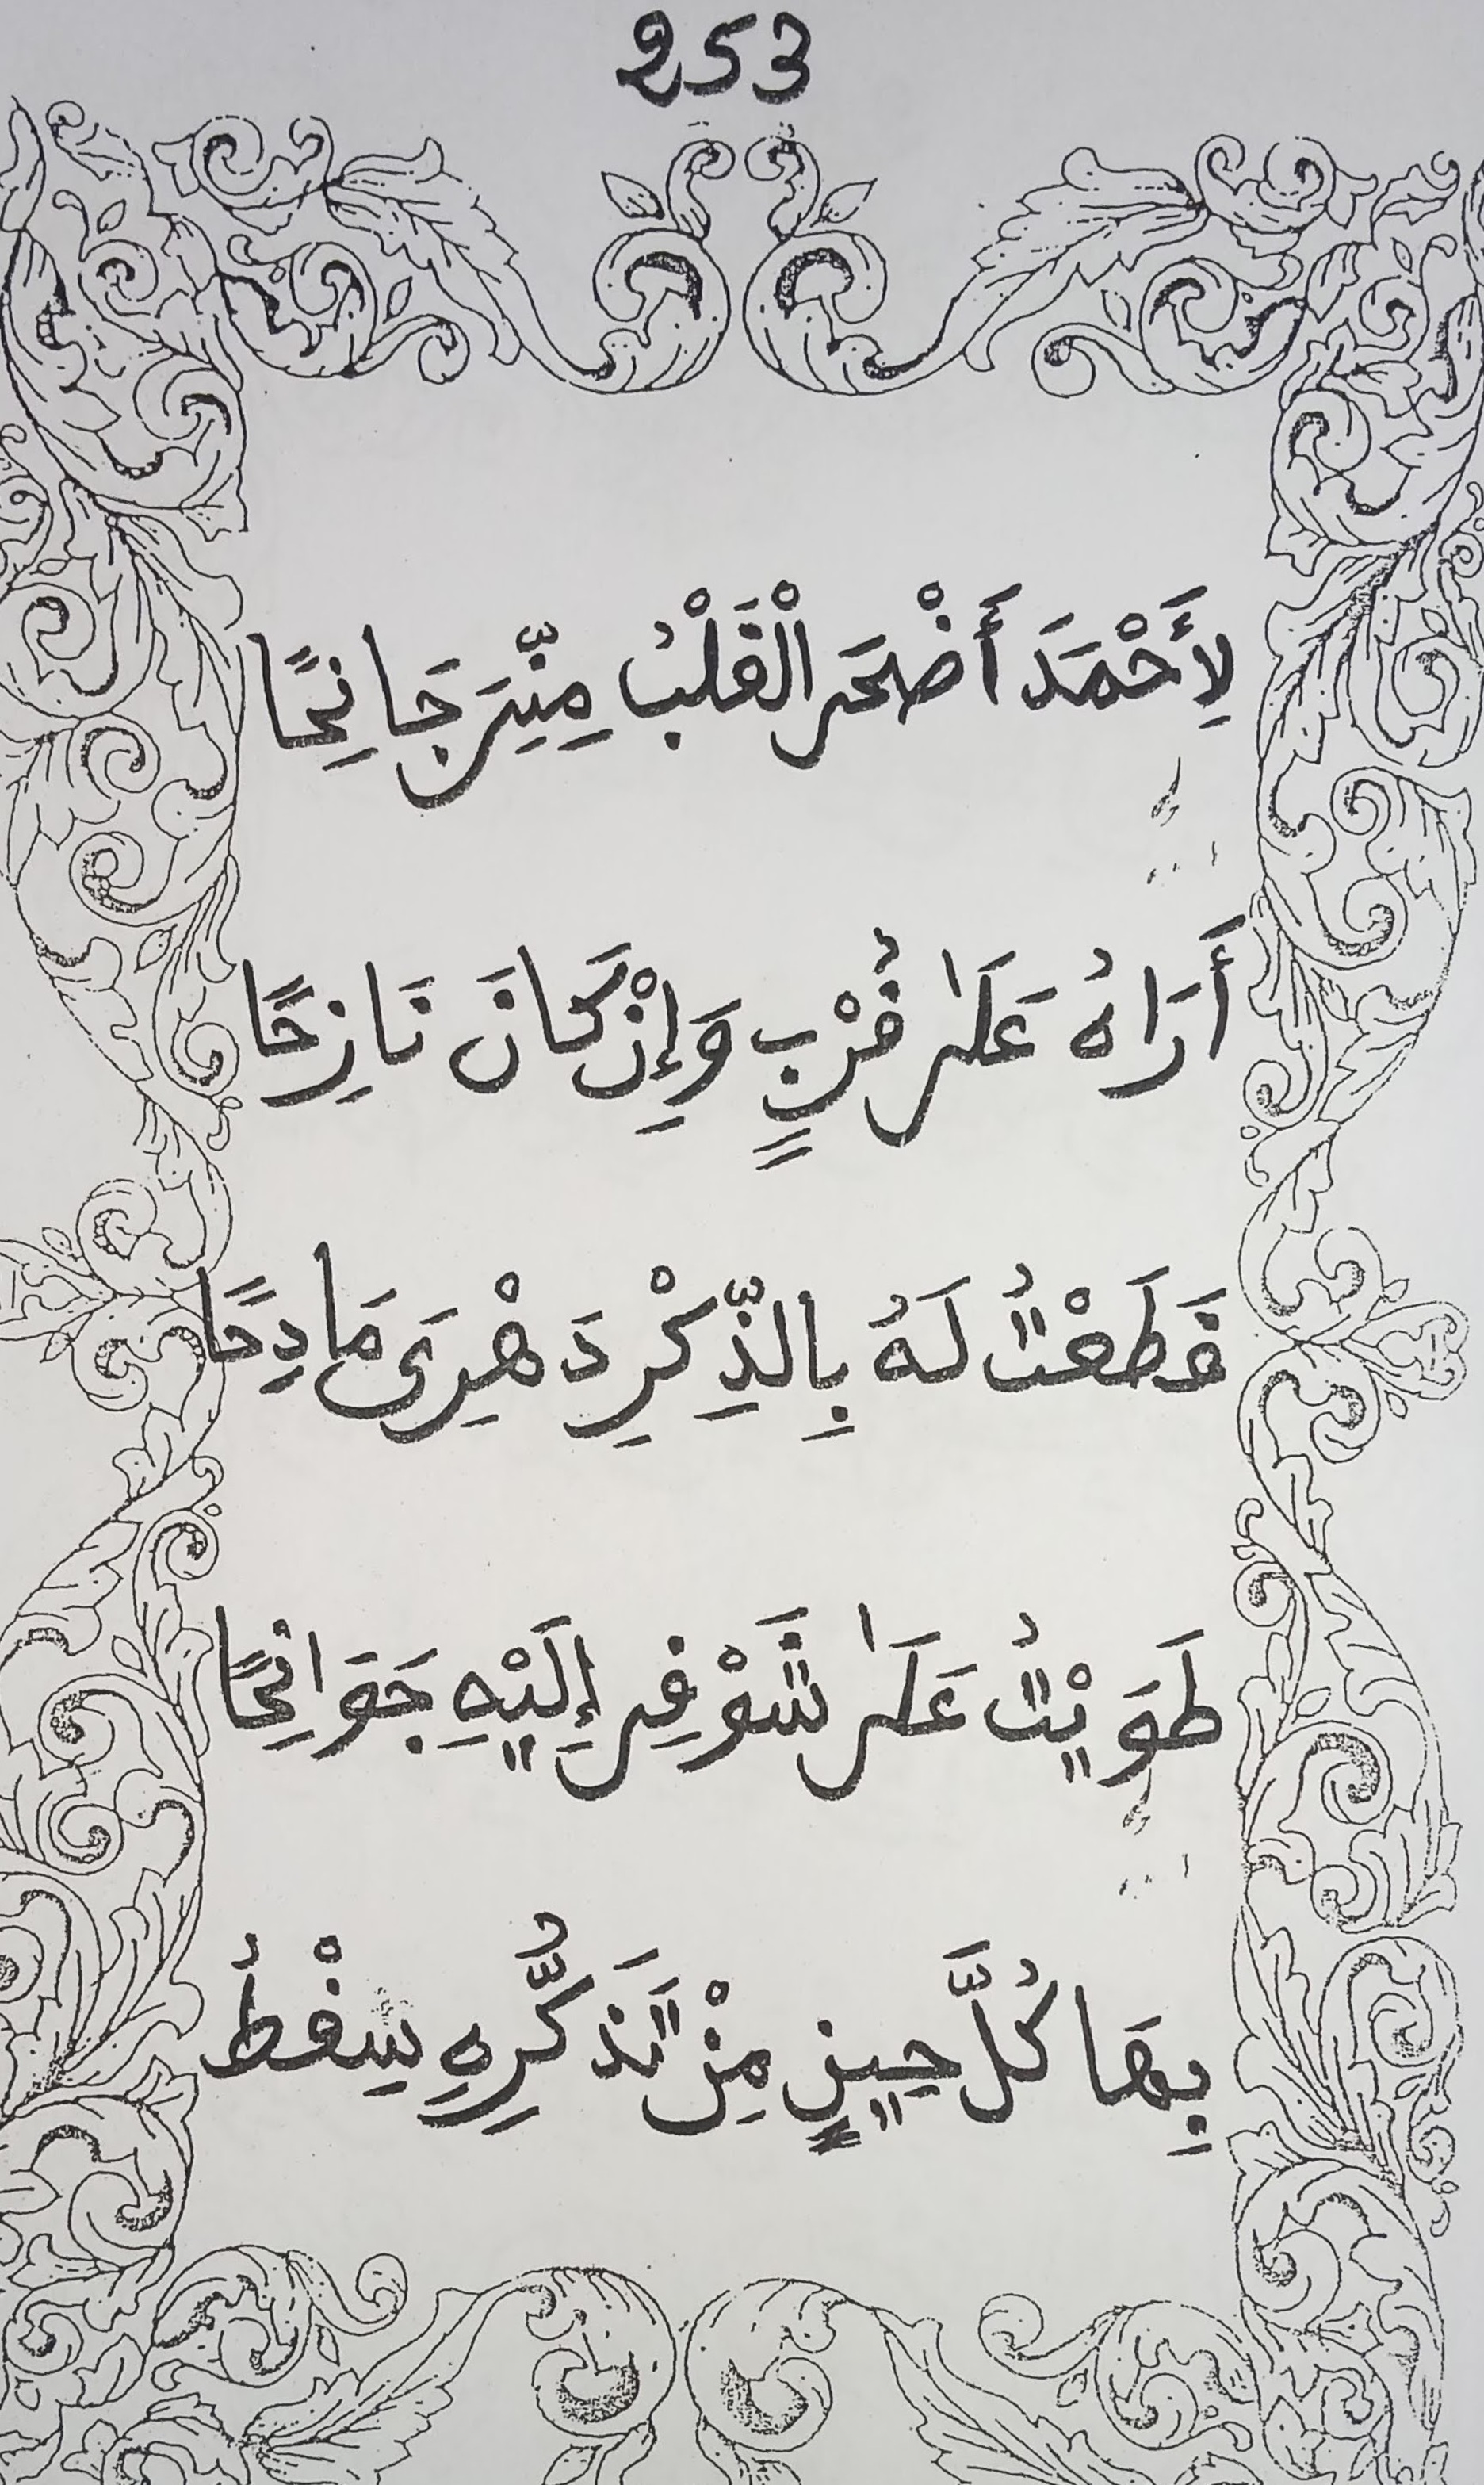 253
لِأَحْمَدَ أَضْحَى الْقَلْبُ مِنِّي جَانِحًا
أَرَاهُ عَلَى قُرْبٍ وَإِنْ كَانَ نَازِحًا
قَطَعْتُ لَهُ بِالذِّكْرِ دَهْرِي مَادِحًا
طَوَيْتُ عَلَى شَوْقِي إِلَيْهِ جَوَانِحًا
بِهَا كُلَّ حِينٍ مِنْ تَذَكُّرِهِ سِقْطُ